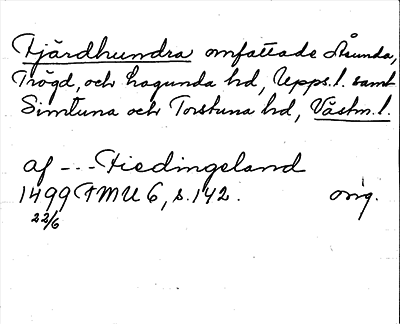 Fjärdhundra omfattade Åsunda,
Trögd, och Lagunda hd, Upps. l. samt
Simtuna och Torstuna hd, Västm. l.
af --- Fiedingsland
1499 FMU 6, s. 142. orig.
22/6